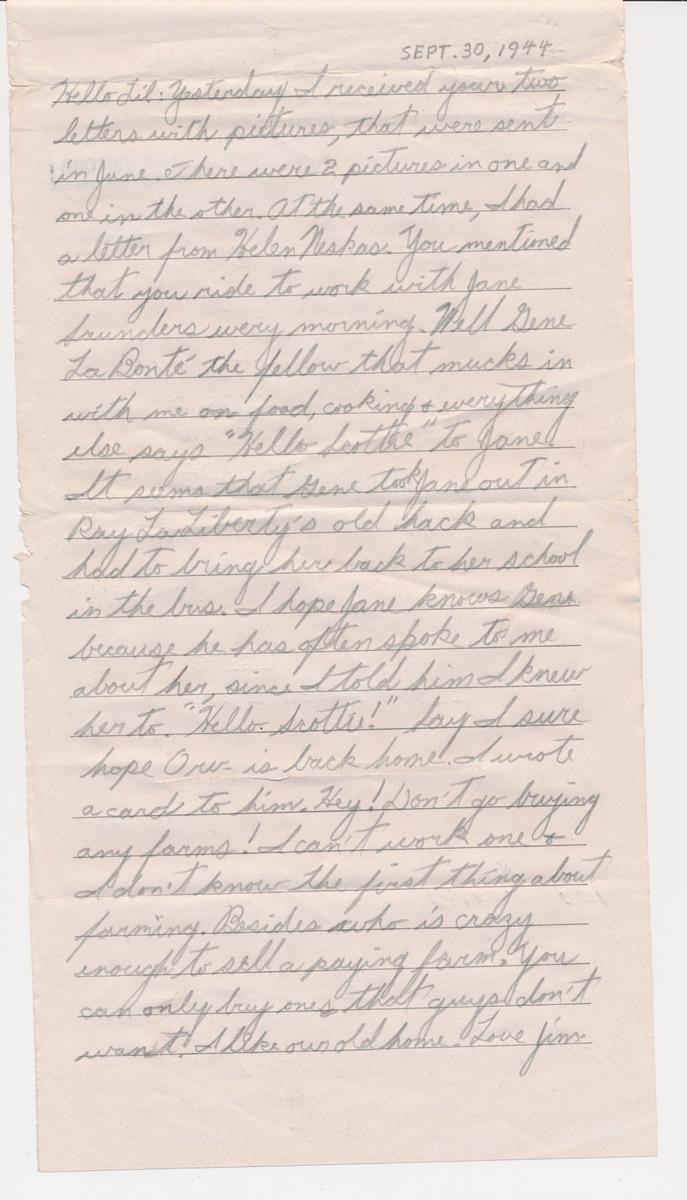 SEPT. 30, 1944
Hello Lil: Yesterday I received your two
letters with pictures, that were sent
in June. There were 2 pictures in one and
one in the other. At the same time, I had
a letter from Helen Neskas. You mentioned
that you ride to work with Jane
Saunders every morning. Well Gene
La Bonté the fellow that mucks in
with me on food, cooking & everything
else says "Hello Scottie" to Jane.
It seems that Gene took Jane out in
Ray LaLiberty's old hack and
had to bring her back to her school
in the bus. I hope Jane knows Gene
because he has often spoke to me
about her, since I told him I knew
her to. "Hello Scottie!" Say I sure
hope Orv- is back home. I wrote
a card to him. Hey! Don't go buying
any farms! I can't work one &
I don't know the first thing about
farming. Besides who is crazy
enough to sell a paying farm. You
can only buy ones that guys don't
want. I like our old home. Love Jim.